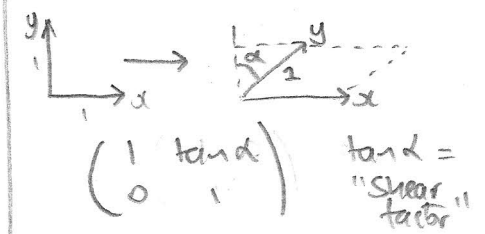 y
1
x
1
1
α
y
1
x
( 1 tanα )
( 0 1 )
tanα =
"shear
factor"